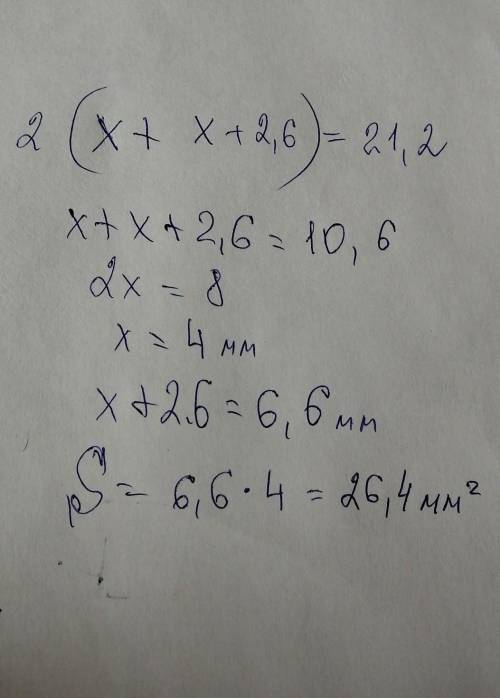 2 (x + x + 2,6) = 21,2
x + x + 2,6 = 10,6
2x = 8
x = 4 мм
x + 2.6 = 6,6 мм
S = 6,6 · 4 = 26,4 мм²